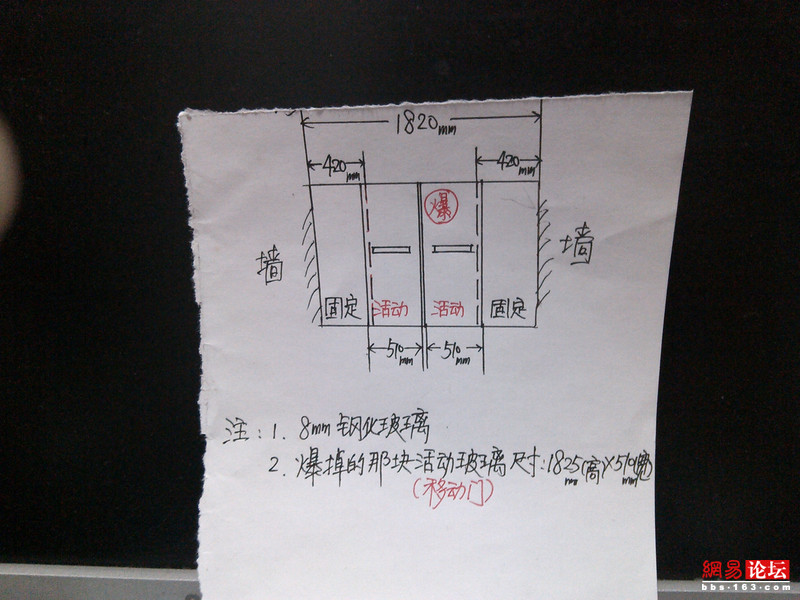 1820mm
420mm 420mm
爆
墙 墙
固定 活动 活动 固定
510mm 510mm
注：1. 8mm 钢化玻璃
2. 爆掉的那块活动玻璃尺寸：1825mm(高)×510mm(宽)
(移动门)
網易 论坛
bbs·163·com